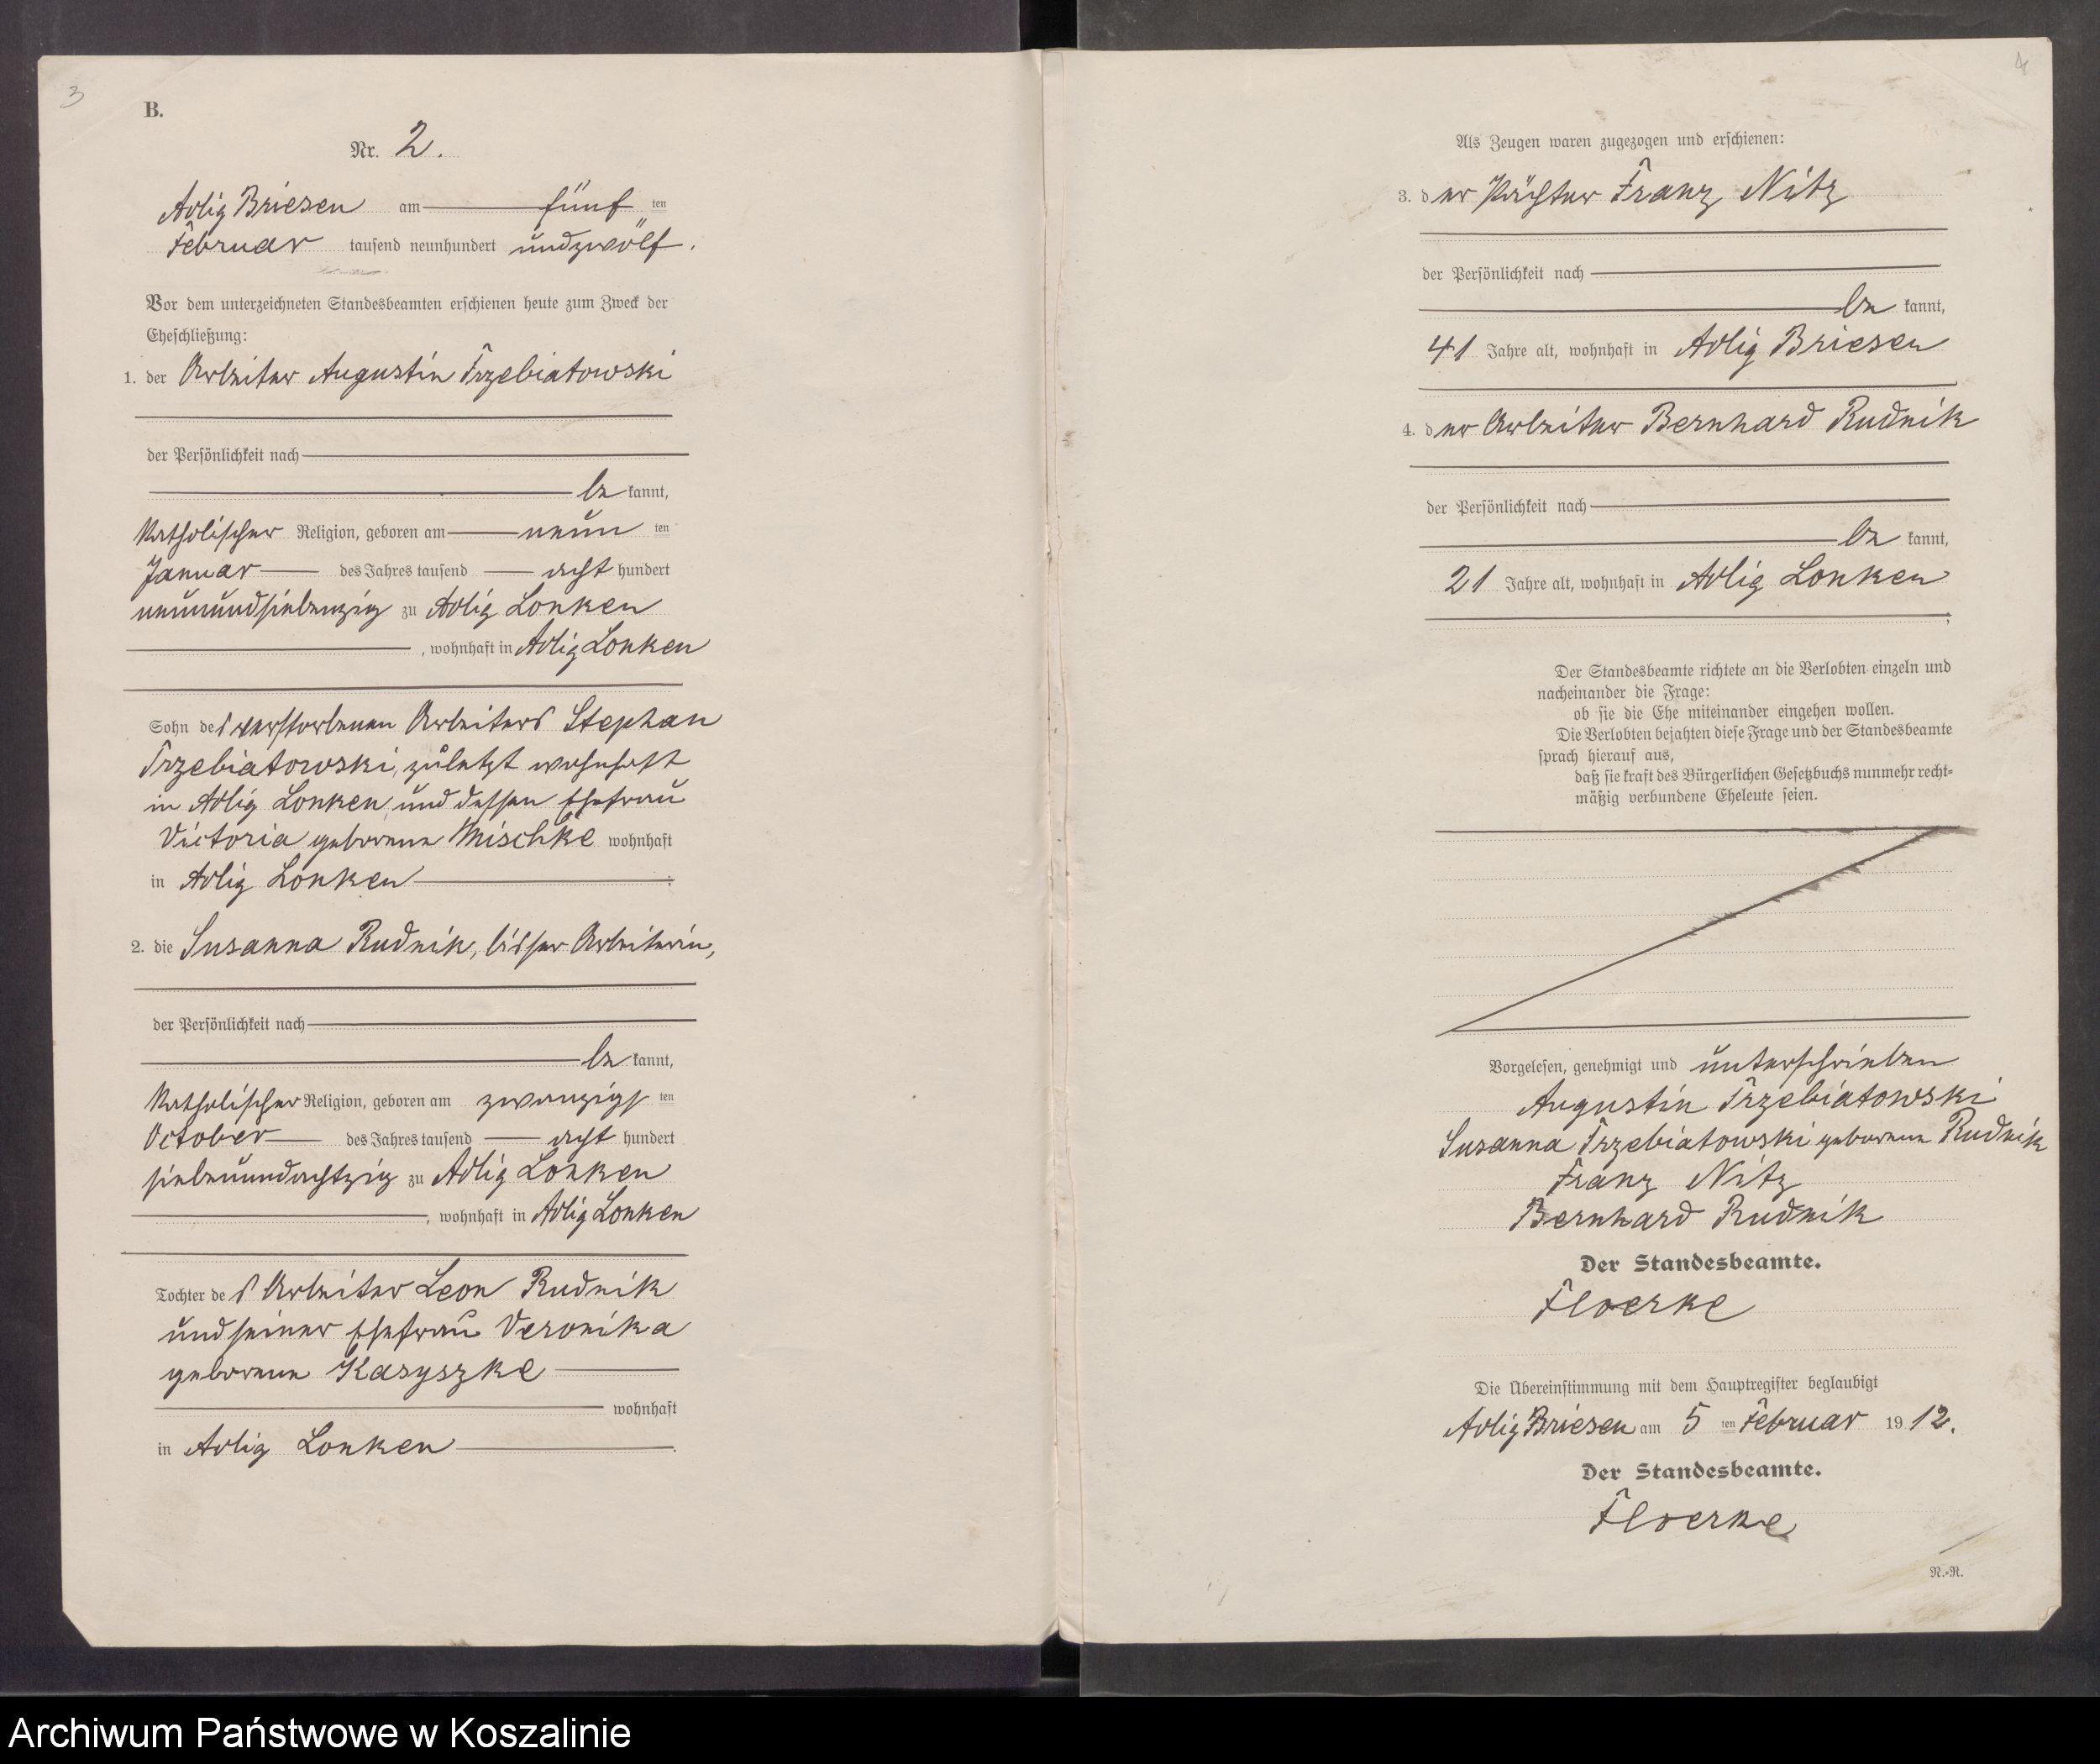 3
B.
Nr. 2.
Adlig Briesen am fünf ten
Februar tausend neunhundert undzwölf.
Vor dem unterzeichneten Standesbeamten erschienen heute zum Zweck der
Eheschließung:
1. der Arbeiter Augustin Trzebiatowski
der Persönlichkeit nach
be kannt,
katholischer Religion, geboren am neun ten
Januar des Jahres tausend acht hundert
neunundsiebenzig zu Adlig Lonken
, wohnhaft in Adlig Lonken
Sohn des verstorbenen Arbeiters Stephan
Trzebiatowski, zuletzt wohnhaft
in Adlig Lonken, und dessen Ehefrau
Victoria geborene Mischke wohnhaft
in Adlig Lonken .
2. die Susanna Rudnik, bisher Arbeiterin,
der Persönlichkeit nach
be kannt,
katholischer Religion, geboren am zwanzigs ten
October des Jahres tausend acht hundert
siebenundachtzig zu Adlig Lonken
, wohnhaft in Adlig Lonken
Tochter des Arbeiter Leon Rudnik
und seiner Ehefrau Veronika
geborene Kasyszke
wohnhaft
in Adlig Lonken .
4
Als Zeugen waren zugezogen und erschienen:
3. der Pächter Franz Nitz
der Persönlichkeit nach
be kannt,
41 Jahre alt, wohnhaft in Adlig Briesen
4. der Arbeiter Bernhard Rudnik
der Persönlichkeit nach
be kannt,
21 Jahre alt, wohnhaft in Adlig Lonken
.
Der Standesbeamte richtete an die Verlobten einzeln und
nacheinander die Frage:
ob sie die Ehe miteinander eingehen wollen.
Die Verlobten bejahten diese Frage und der Standesbeamte
sprach hierauf aus,
daß sie kraft des Bürgerlichen Gesetzbuchs nunmehr recht-
mäßig verbundene Eheleute seien.
Vorgelesen, genehmigt und unterschrieben
Augustin Trzebiatowski
Susanna Trzebiatowski geborene Rudnik
Franz Nitz
Bernhard Rudnik
Der Standesbeamte.
Floerke
Die Übereinstimmung mit dem Hauptregister beglaubigt
Adlig Briesen am 5 ten Februar 19 12.
Der Standesbeamte.
Floerke
N.-R.
Archiwum Państwowe w Koszalinie